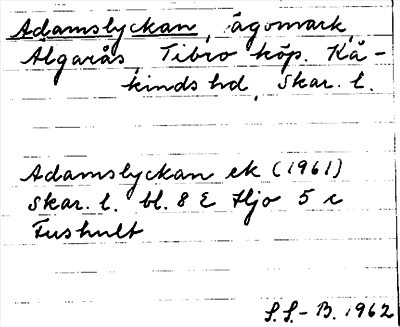 Adamslyckan, ägomark,
Algarås, Tibro köp. Kå-
kinds hd, Skar. l.
Adamslyckan ek (1961)
Skar. l. bl. 8 E Hjo 5 c
Fushult
S.S.-B. 1962